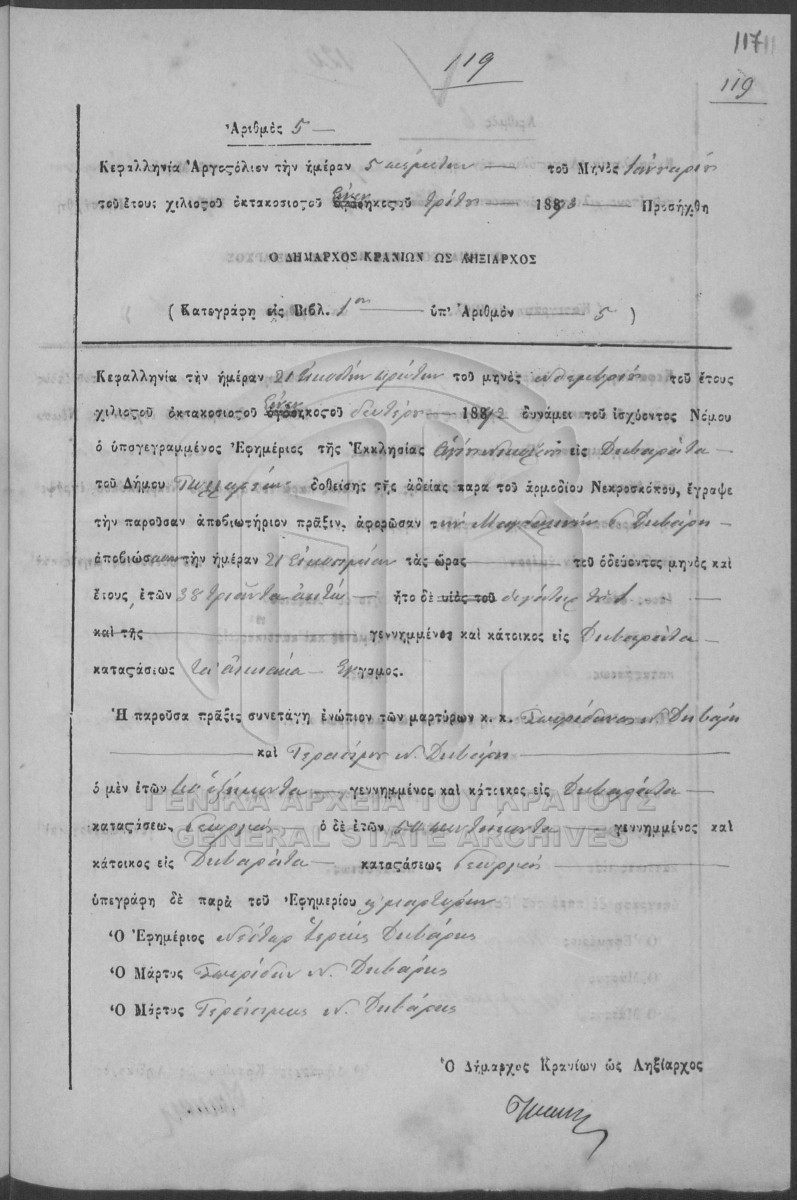 117
119
119
Ἀριθμὸς 5 —
Κεφαλληνία Ἀργοςόλιον τὴν ἡμέραν 5 πέμπτην — τοῦ Μηνὸς Ἰαννουαρίου
τοῦ ἔτους χιλιοςοῦ ὀκτακοσιοςοῦ ἐννενηκοςοῦ τρίτου — 1893 — Προσήχθη
Ο ΔΗΜΑΡΧΟΣ ΚΡΑΝΙΩΝ ΩΣ ΛΗΞΙΑΡΧΟΣ
(Κατεγράφη εἰς Βιβλ. 1ον — ὑπ' Ἀριθμὸν — 5)
Κεφαλληνία τὴν ἡμέραν 21 εἰκοστὴν πρώτην τοῦ μηνὸς τοῦ ἔτους
χιλιοςοῦ ὀκτακοσιοςοῦ ἐννενηκοςοῦ δευτέρου — 1892 δυνάμει τοῦ ἰσχύοντος Νόμου
ὁ ὑπογεγραμμένος Ἐφημέριος τῆς Ἐκκλησίας Ἁγίου Νικολάου εἰς Διβαράτα —
τοῦ Δήμου δοθείσης τῆς ἀδείας παρὰ τοῦ ἁρμοδίου Νεκροσκόπου, ἔγραψε
τὴν παροῦσαν ἀποβιωτήριον πρᾶξιν, ἀφορῶσαν τὴν Διβάρη —
ἀποβιώσασαν τὴν ἡμέραν 21 τὰς ὥρας — τοῦ ὁδεύοντος μηνὸς καὶ
ἔτους, ἐτῶν 38 τριάντα ὀκτὼ — ἦτο δὲ υἱὸς τοῦ θυγάτηρ τοῦ
καὶ τῆς — γεννημμένος καὶ κάτοικος εἰς Διβαράτα —
καταςάσεως τὰ οἰκιακὰ — ἔγγαμος.
Ἡ παροῦσα πρᾶξις συνετάγη ἐνώπιον τῶν μαρτύρων κ. κ. Σπυρίδωνος Ν. Διβάρη
— καὶ Γερασίμου Ν. Διβάρη —
ὁ μὲν ἐτῶν 60 ἑξήκοντα — γεννημμένος καὶ κάτοικος εἰς Διβαράτα —
καταςάσεως γεωργὸς ὁ δὲ ἐτῶν 50 πεντήκοντα — γεννημμένος καὶ
κάτοικος εἰς Διβαράτα — καταςάσεως γεωργὸς —
ὑπεγράφη δὲ παρὰ τοῦ Ἐφημερίου μαρτύρων
Ὁ Ἐφημέριος Νέστωρ Ἱερεὺς Διβάρης
Ὁ Μάρτυς Σπυρίδων Ν. Διβάρης
Ὁ Μάρτυς Γεράσιμος Ν. Διβάρης
Ὁ Δήμαρχος Κρανίων ὡς Ληξίαρχος
ΓΕΝΙΚΑ ΑΡΧΕΙΑ ΤΟΥ ΚΡΑΤΟΥΣ
GENERAL STATE ARCHIVES